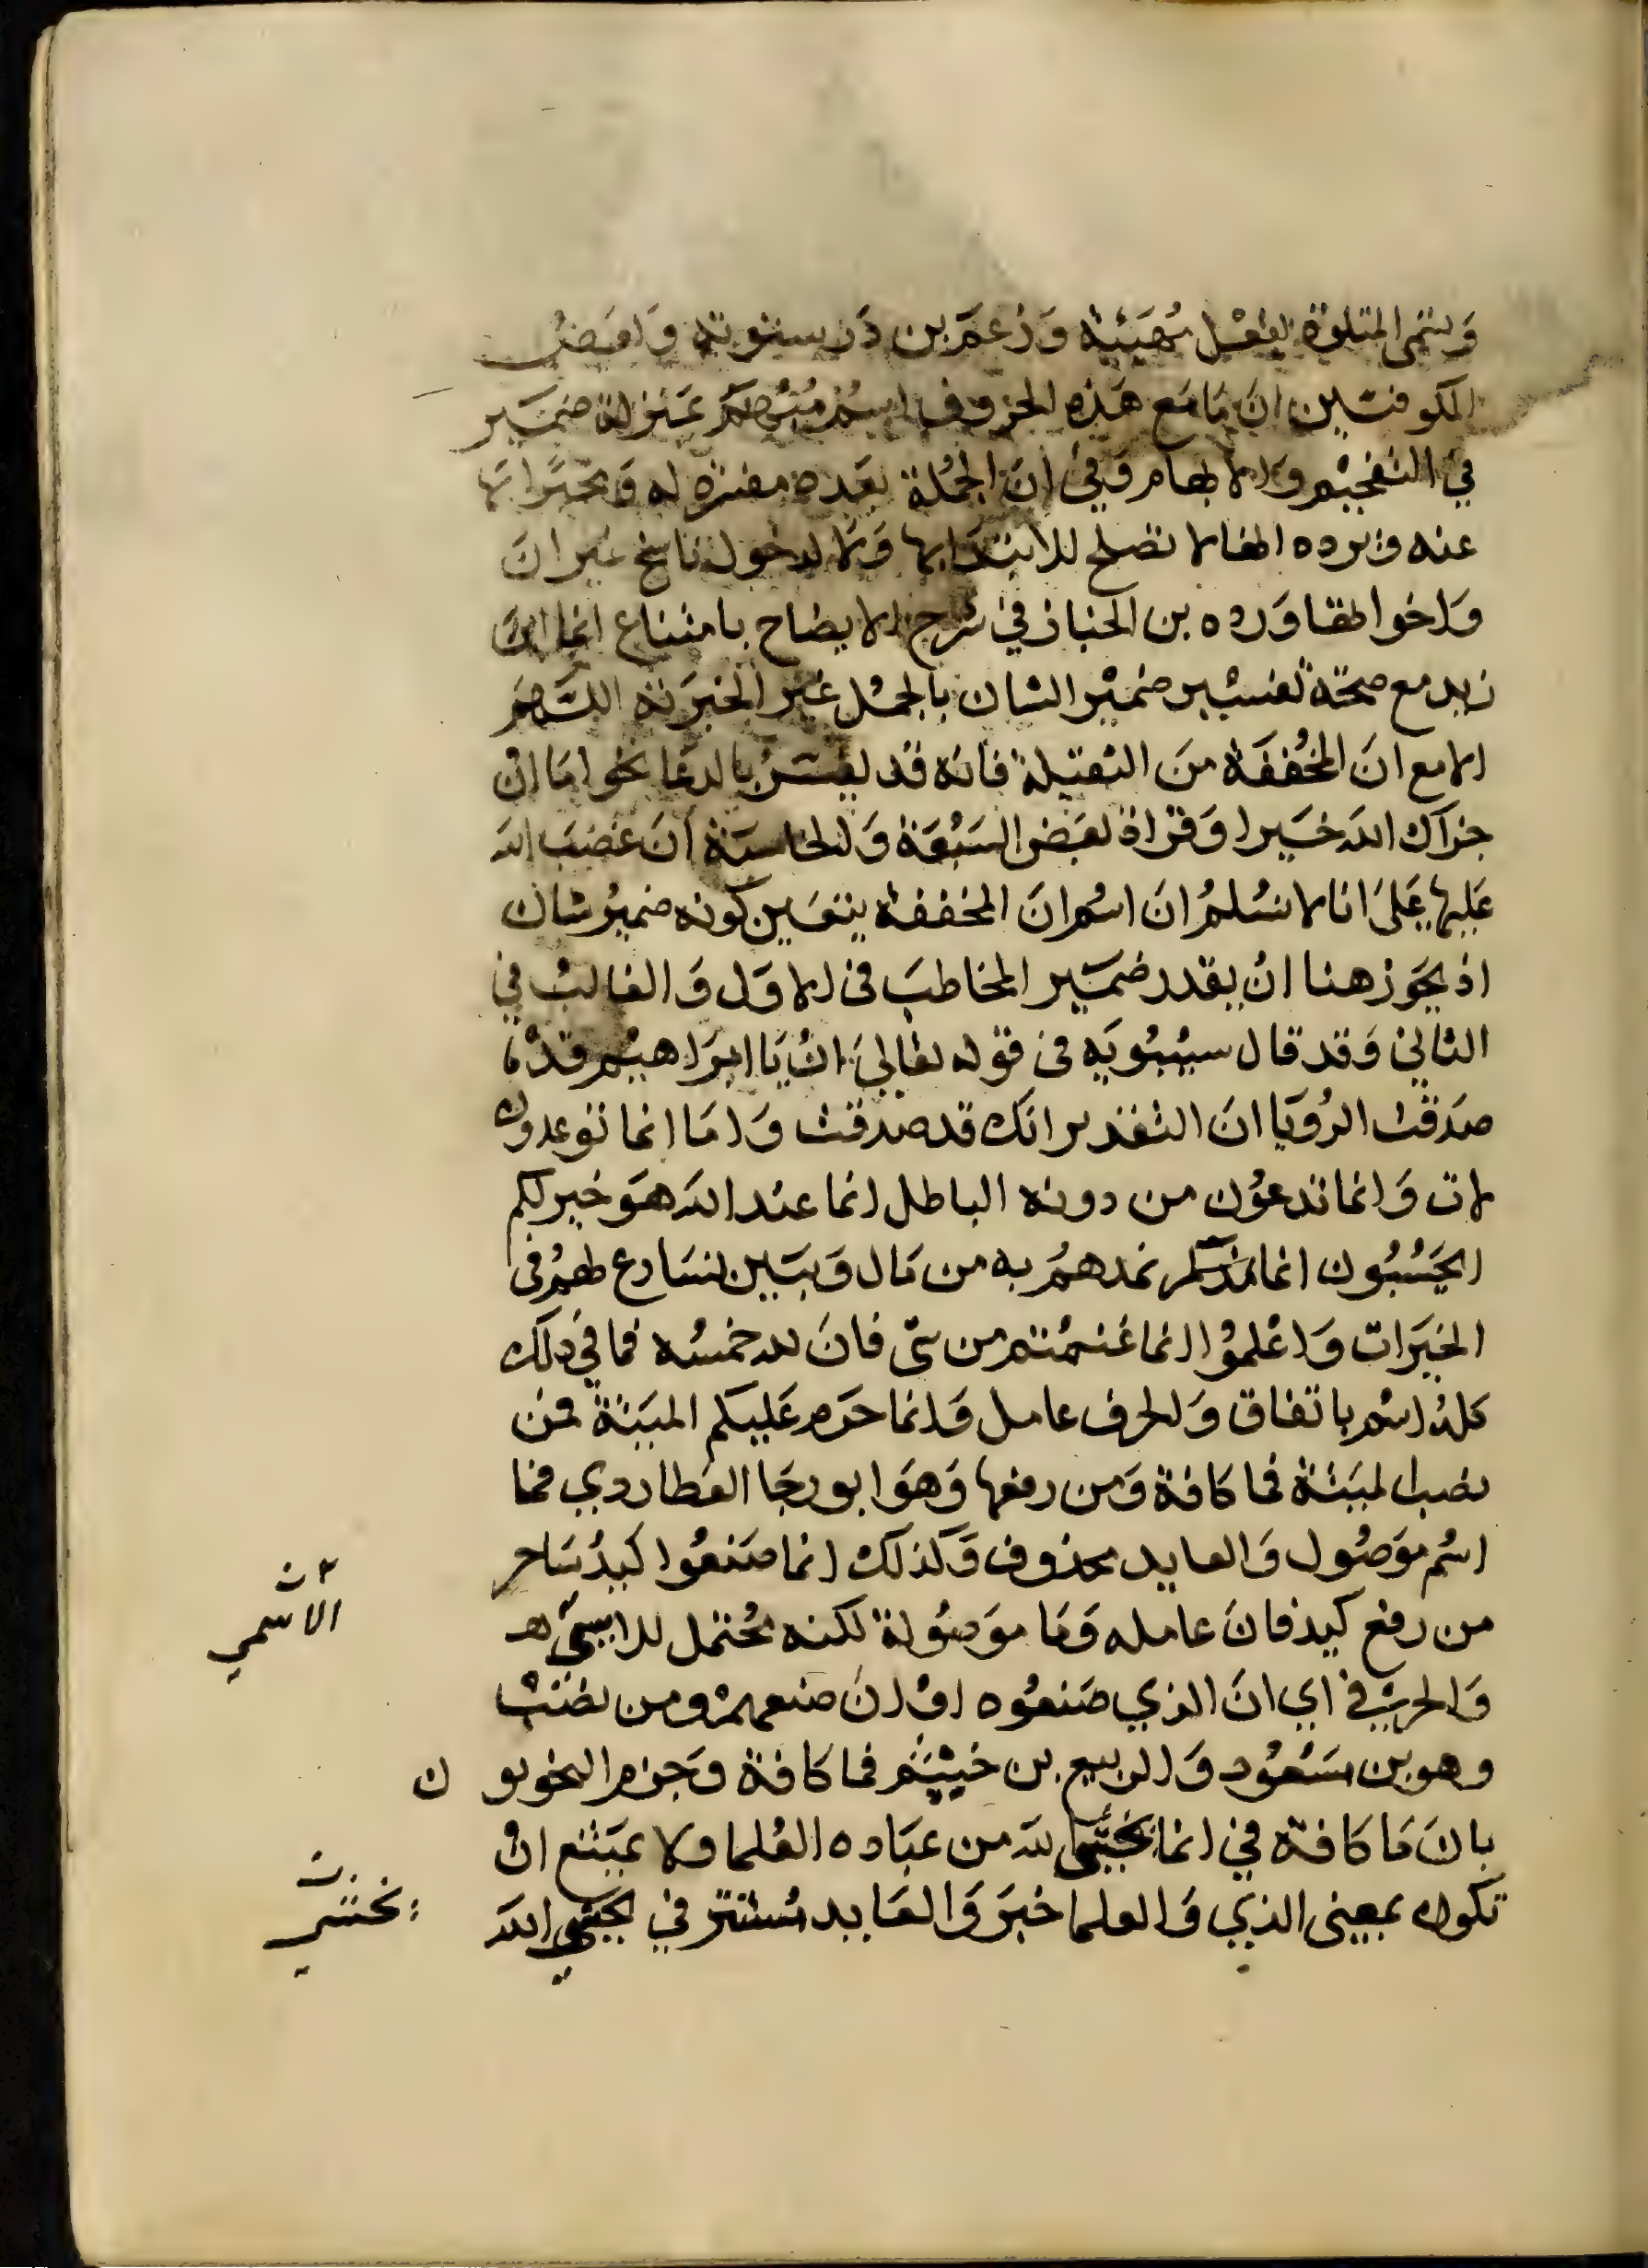 وتسمى المتلوة بفعل مهيئة وزعم بن درستويه وبعض
الكوفيين ان ما مع هذه الحروف اسم مبهم بمنزلة ضمير
في التفخيم والابهام وفي ان الجملة بعده مفسرة له ومخبر بها
عنه ويرده انها لا تصلح للابتدا بها ولا لدخول ناسخ غير ان
واخواتها ورده بن الخباز في شرح الايضاح بامتناع انما اين
زيد مع صحة تفسير ضمير الشان بالجمل غير الخبرية اللهم
الا مع ان المخففة من الثقيلة فانه قد يفسر بالدعا نحو اما ان
جزاك الله خيرا وقراة بعض السبعة والخامسة ان غضب الله
عليها على انا لا نسلم ان اسم ان المخففة يتعين كونه ضمير شان
اذ يجوز هنا ان يقدر ضمير المخاطب في الاول والغائب في
الثاني وقد قال سيبويه في قوله تعالى ان يا ابراهيم قد
صدقت الرويا ان التقدير انك قد صدقت واما انما توعدون
لات وانما تدعون من دونه الباطل انما عند الله هو خير لكم
ايحسبون انما نمدهم به من مال وبنين نسارع لهم في
الخيرات واعلموا انما غنمتم من شي فان لله خمسه فما في ذلك
كله اسم باتفاق والحرف عامل وانما حرم عليكم الميتة فمن
نصب الميتة فما كافة ومن رفعها وهو ابو رجا العطاردي فما
اسم موصول والعايد محذوف وكذلك انما صنعوا كيد ساحر
من رفع كيد فان عامله وما موصولة لكنه محتمل للاسمي
والحرفي اي ان الذي صنعوه او ان صنعهم ومن نصب
وهو بن مسعود والربيع بن خيثم فما كافة وجزم النحويون
بان ما كافة في انما يخشى الله من عباده العلما ولا يمتنع ان
تكون بمعنى الذي والعلما خبر والعايد مستتر في يخشى الله
الاسمي
يخشى